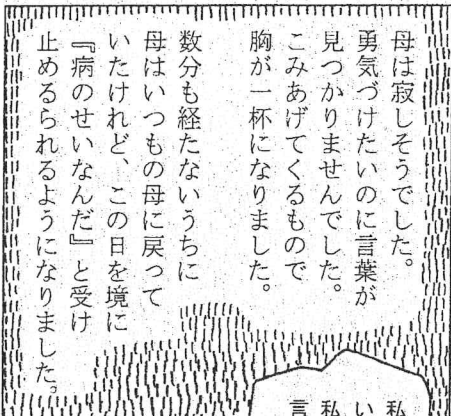 母は寂しそうでした。
勇気づけたいのに言葉が
見つかりませんでした。
こみあげてくるもので
胸が一杯になりました。
数分も経たないうちに
母はいつもの母に戻って
いたけれど、この日を境に
『病のせいなんだ』と受け
止めるられるようになりました。
私
い
私
言